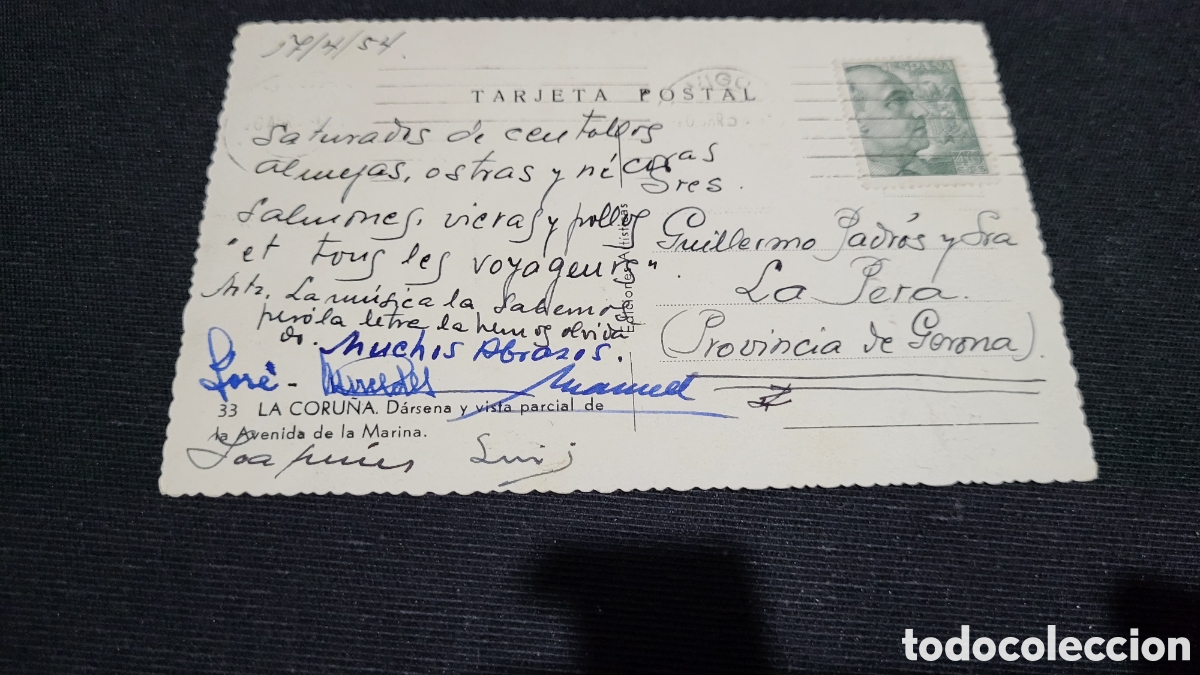 17/4/54
TARJETA POSTAL
ESPAÑA
Saturados de centollos
almejas, ostras y nécoras
Salmones, vieras y pollos
"et tous les voyageurs".
Ntz. La música la sabemos
pero la letra la hemos olvida
do. Muchos Abrazos.
José - Mercedes Manuel
33 LA CORUÑA. Dársena y vista parcial de
la Avenida de la Marina.
Joaquín Luis
Ediciones Artísticas
Sres.
Guillermo Padrós y Sra
La Pera.
(Provincia de Gerona).
todocoleccion